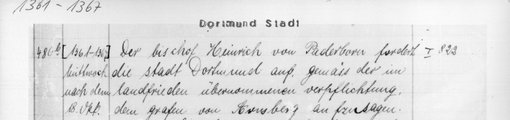 1361 - 1367
Dortmund Stadt
480b [1361-1367] Der bischof Heinrich von Paderborn fordert I 823
mittwoch die stadt Dortmund auf, gemäss der im
nach dem landfrieden übernommenen verpflichtung,
dem grafen von Arnsberg anzusagen.